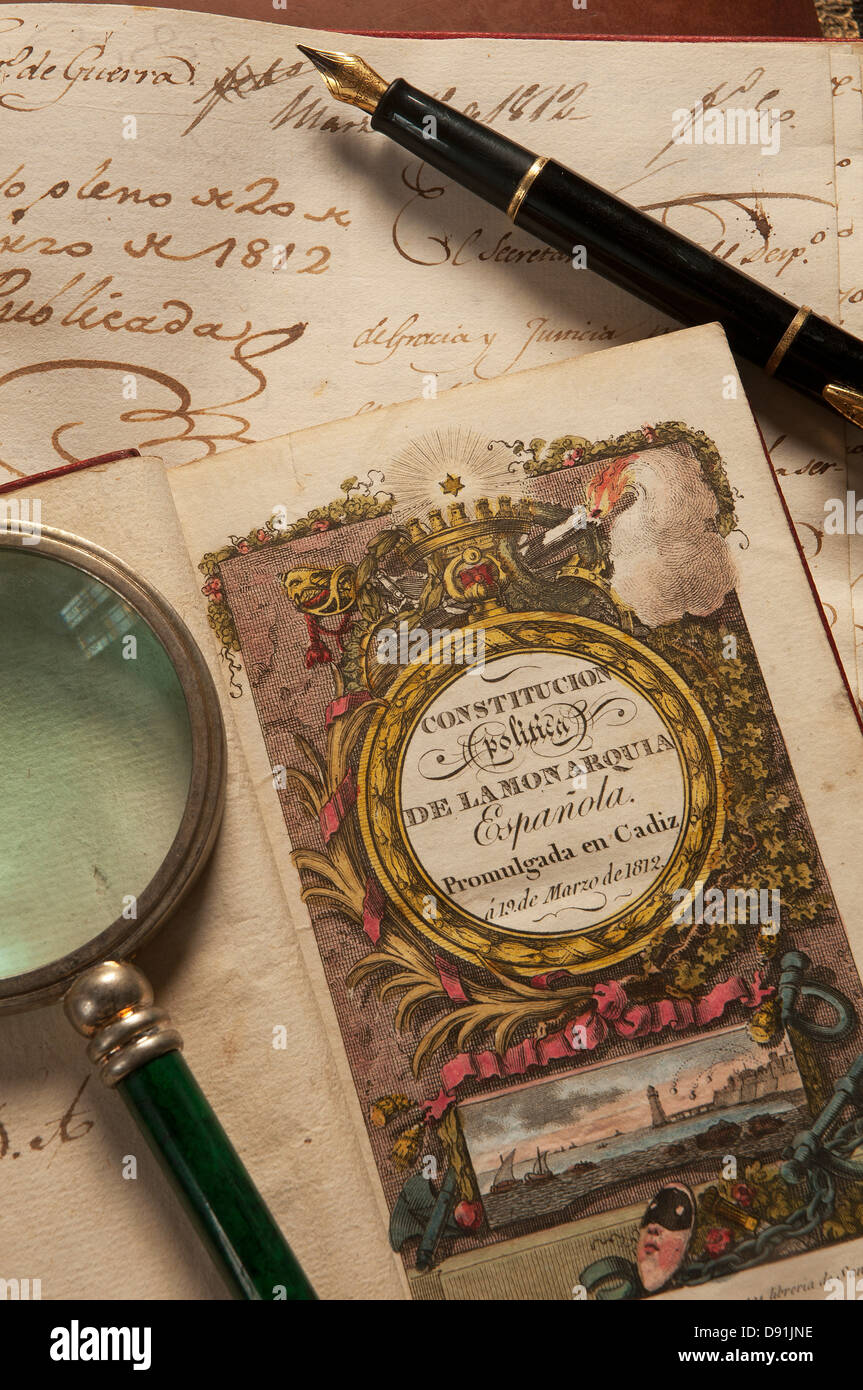 de Guerra.
Marzo de 1812
pleno de 20 de
Marzo de 1812
Publicada
El Secretario del Desp.º
de Gracia y Justicia
CONSTITUCION
politica
DE LA MONARQUIA
Española.
Promulgada en Cadiz
á 19. de Marzo de 1812.
libreria de
alamy
Image ID: D91JNE
www.alamy.com